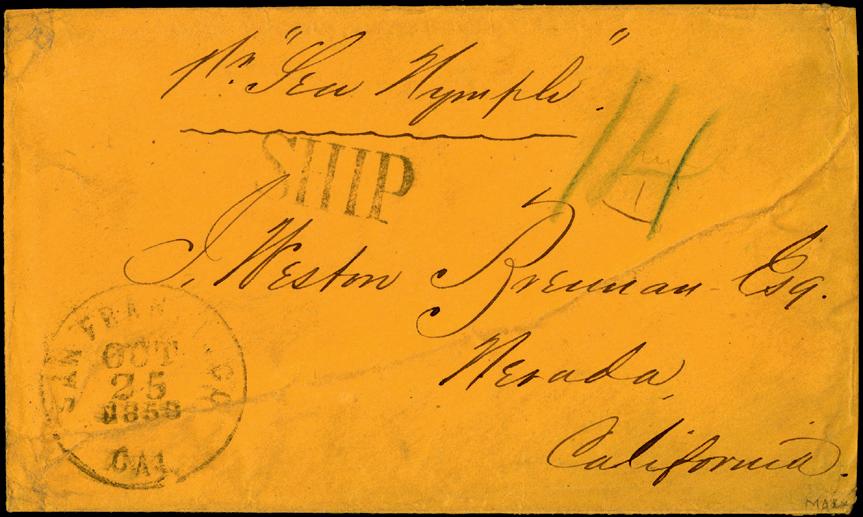 pr. "Sea Nymph".
SHIP
14
J. Weston Brennan Esq.
Nevada,
California.
SAN FRANCISCO
OCT
25
1858
CAL